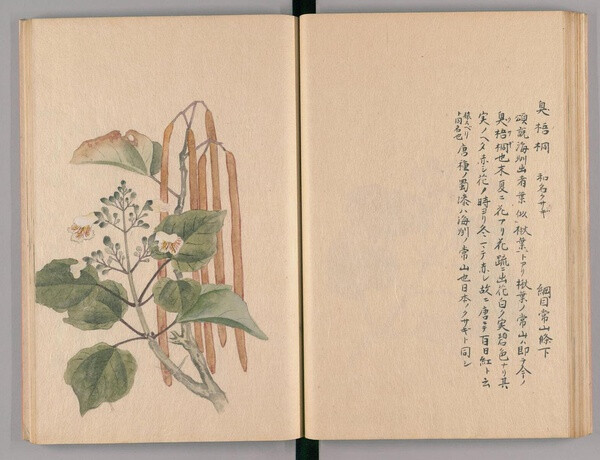 臭梧桐 和名クサギ 綱目常山條下
頌説海州出者葉似楸葉トアリ楸葉ノ常山ハ即チ今ノ
臭梧桐也木夏ニ花アリ花疏ニ出花白ク実碧色ナリ其
実ノヘタ赤シ花ノ時ヨリ冬マテ赤シ故ニ唐ニテ百日紅ト云
ト同名也 唐種ノ蜀漆ハ海州ノ常山也日本ノクサギト同シ